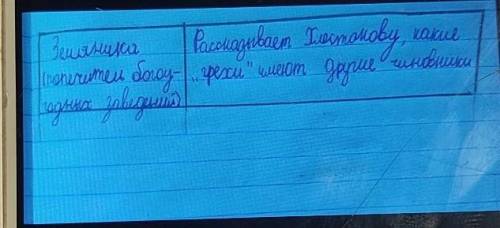 Земляника
(попечитель богоу-
годных заведений)
Рассказывает Хлестакову, какие
„грехи" имеют другие чиновники